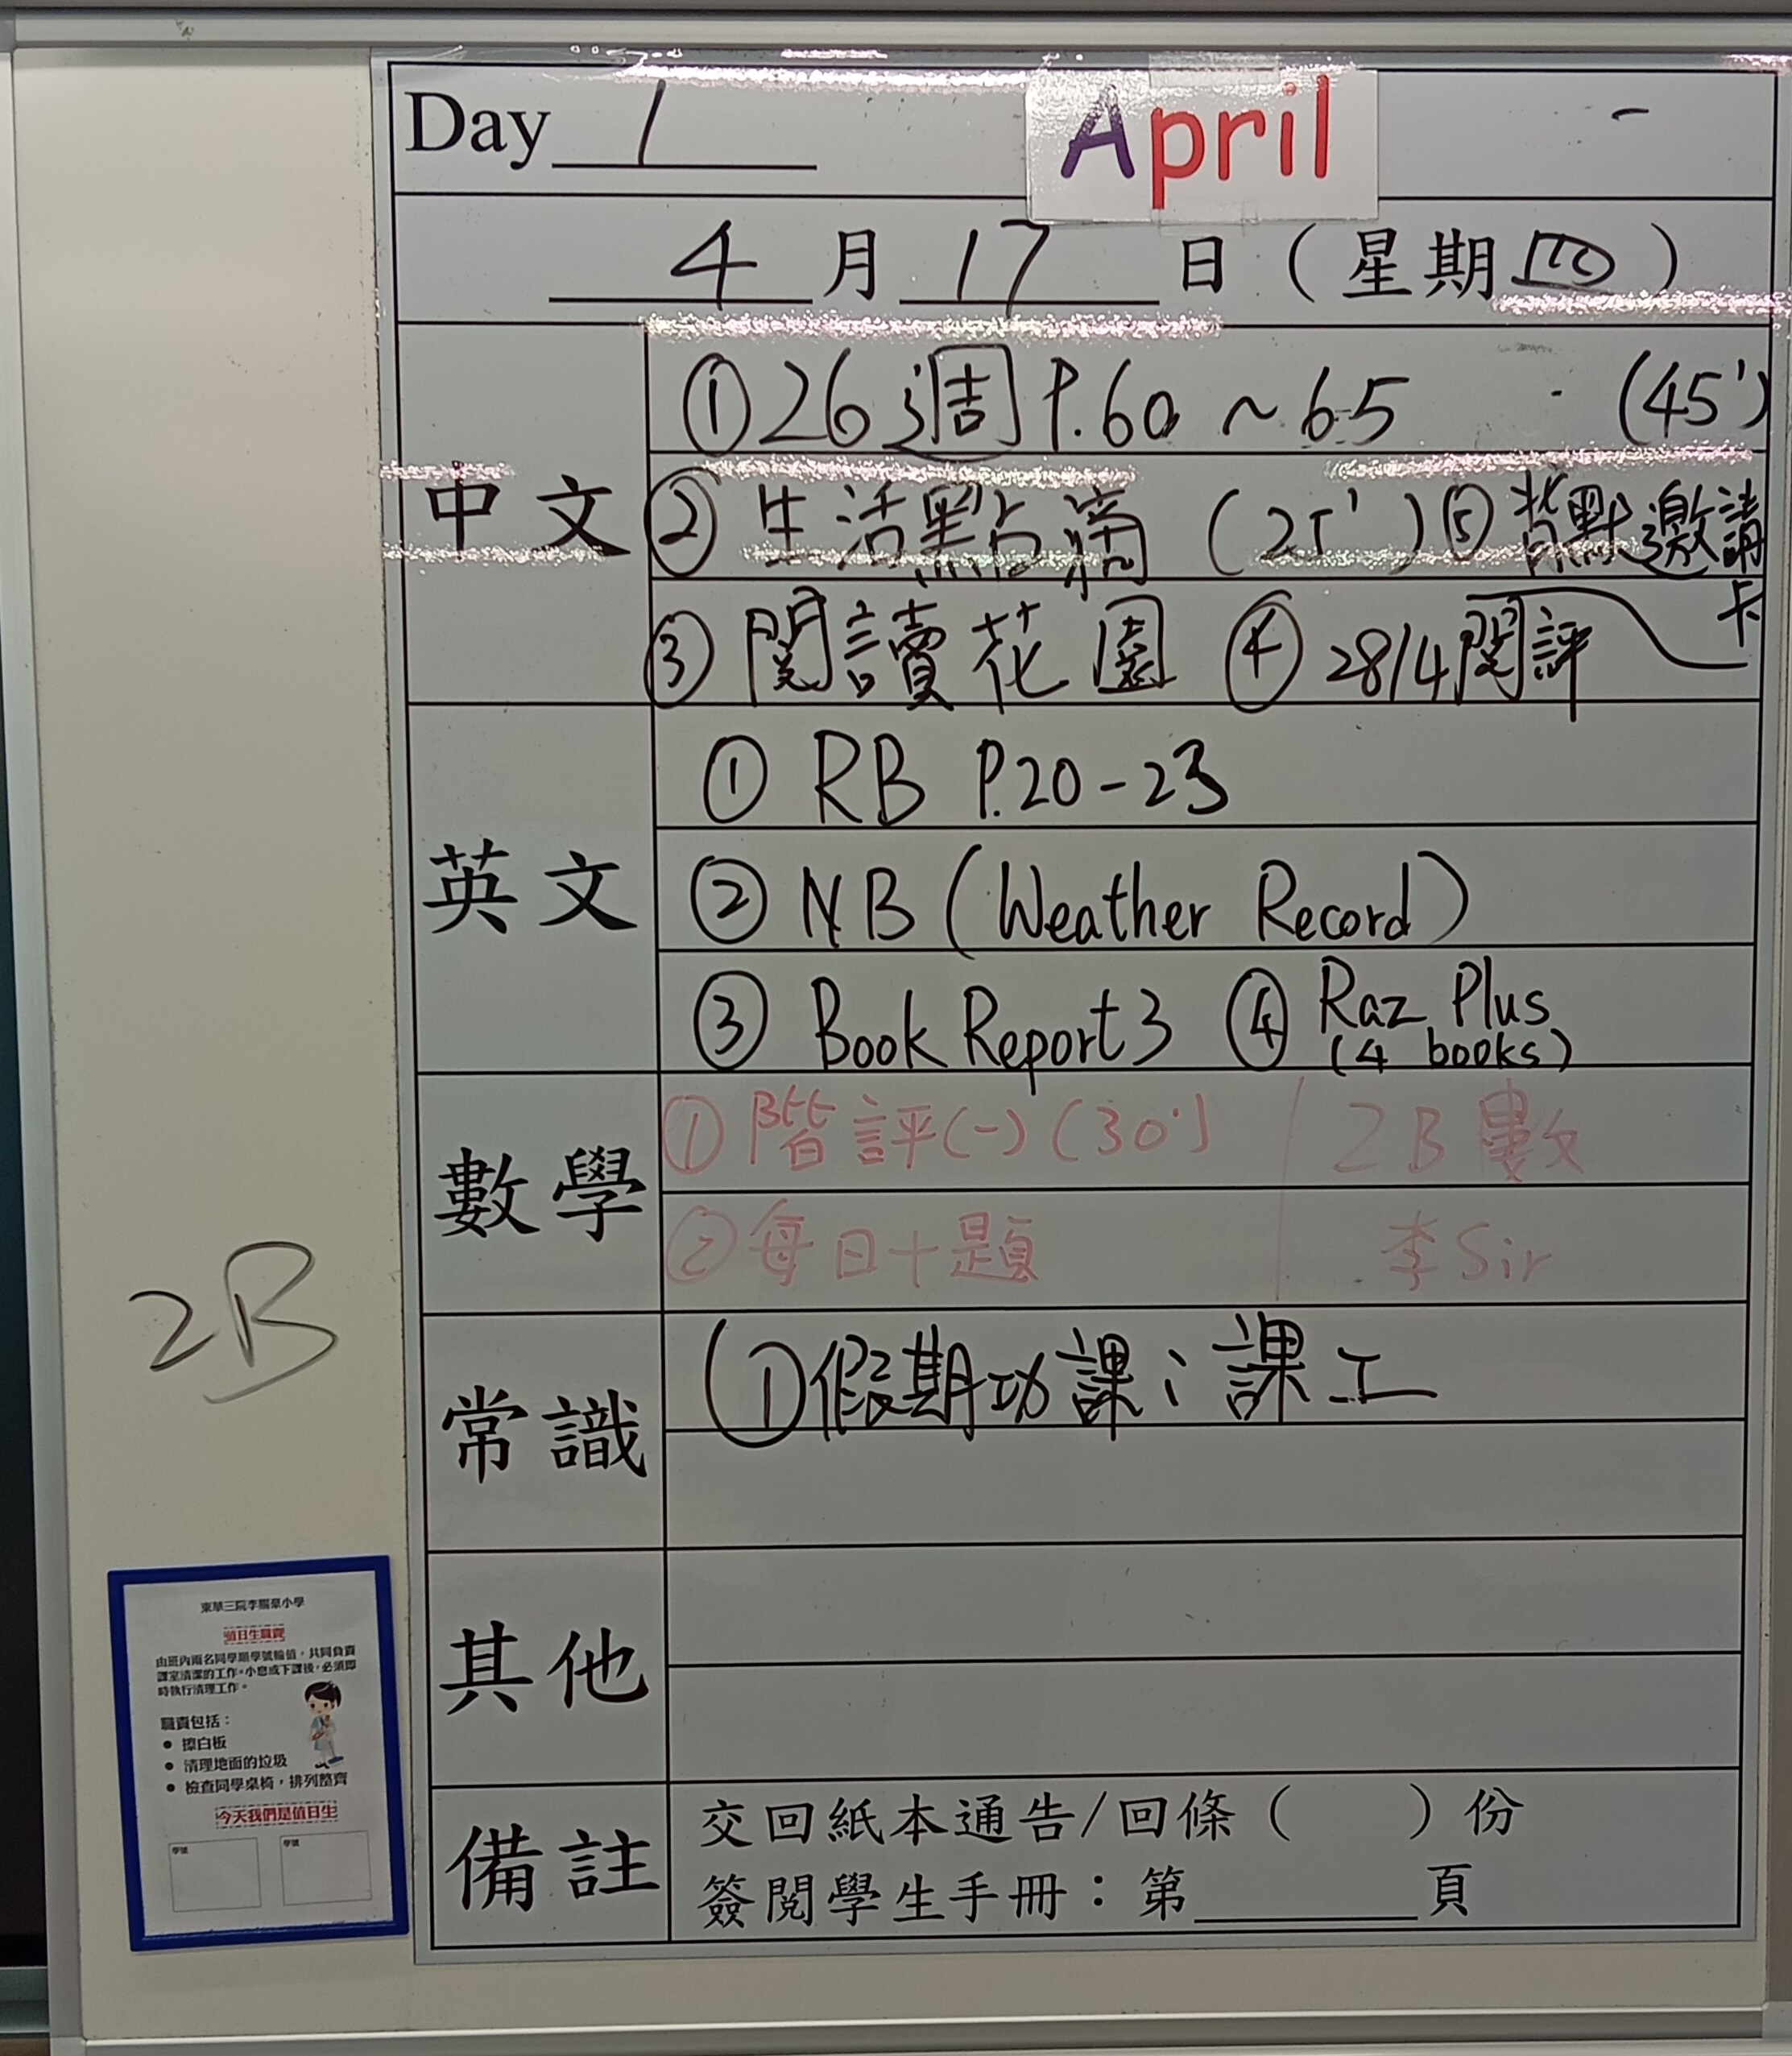 Day 1 April
4 月 17 日 ( 星期 四 )
中文
① 26 週 P.60 ~ 65 (45')
② 生活點滴 (25') ⑤ 背默邀請卡
③ 閱讀花園 ④ 28/4 閱評
英文
① RB P.20-23
② NB (Weather Record)
③ Book Report 3 ④ Raz Plus (4 books)
數學
① 階評(一) (30') 2B 數
② 每日十題 李 Sir
常識
① 假期功課:課工
其他
備註
交回紙本通告/回條 ( ) 份
簽閱學生手冊:第 頁
2B
東華三院李賜豪小學
值日生職責
由班內兩名同學順學號輪值,共同負責
課室清潔的工作。小息或下課後,必須即
時執行清理工作。
職責包括:
● 擦白板
● 清理地面的垃圾
● 檢查同學桌椅,排列整齊
今天我們是值日生
學號 學號